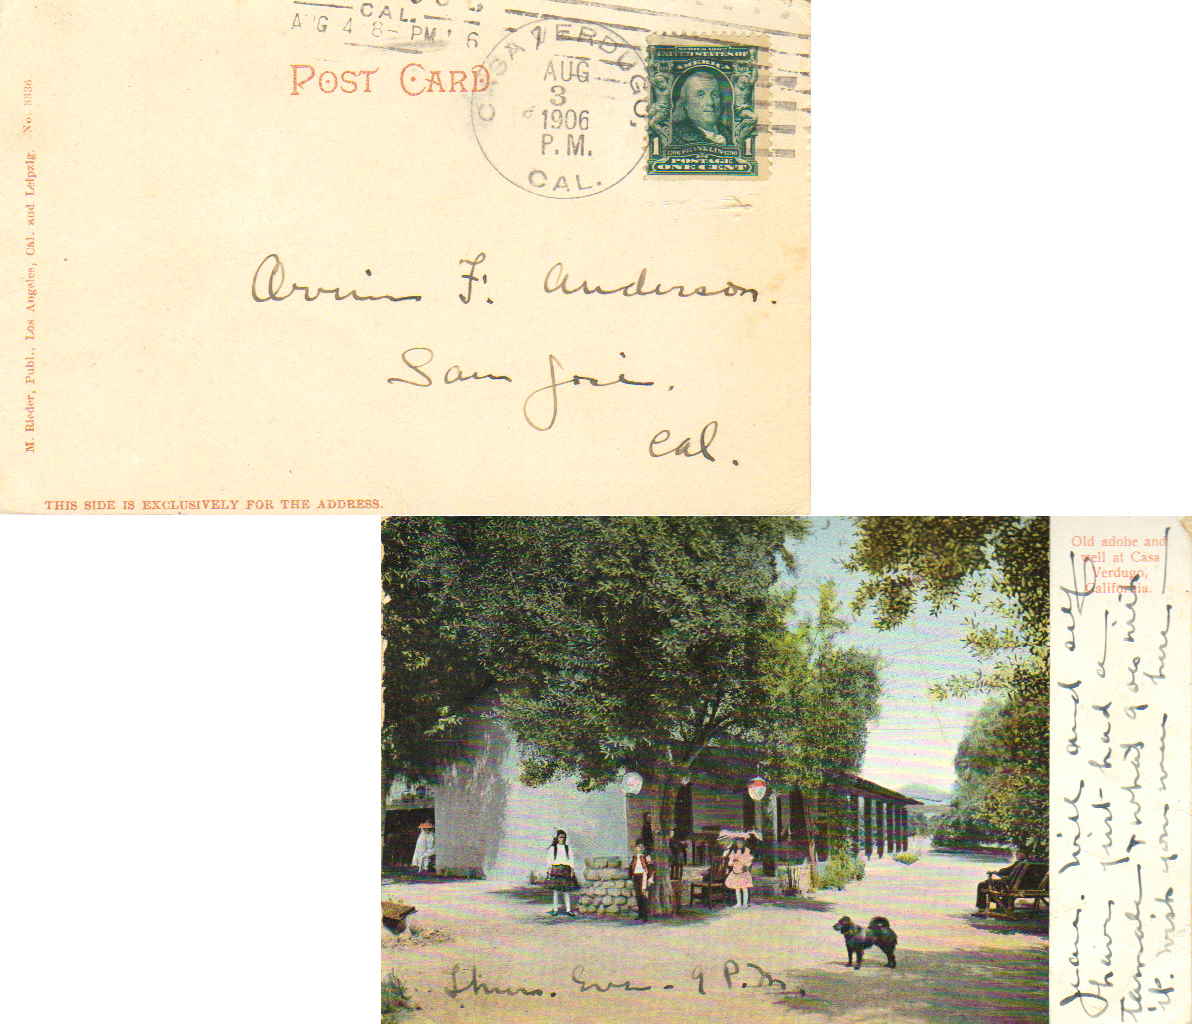 CAL.
AUG 4 8-PM '6
POST CARD
CASA VERDUGO,
AUG
3
1906
P.M.
CAL.
SERIES 1902
UNITED STATES OF
AMERICA
FRANKLIN
1 POSTAGE 1
ONE CENT
M. Rieder, Publ., Los Angeles, Cal. and Leipzig. No. 3336
Arvin F. Anderson.
San José.
Cal.
THIS SIDE IS EXCLUSIVELY FOR THE ADDRESS.
Old adobe and
well at Casa
Verdugo,
California.
Will and self
have just had a
tamale & what goes with
it. Wish you were here
Thurs. Eve - 9 P.M.